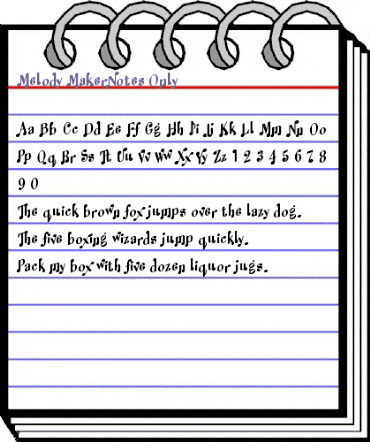 Melody MakerNotes Only
Aa Bb Cc Dd Ee Ff Gg Hh Ii Jj Kk Ll Mm Nn Oo
Pp Qq Rr Ss Tt Uu Vv Ww Xx Yy Zz 1 2 3 4 5 6 7 8
9 0
The quick brown fox jumps over the lazy dog.
The five boxing wizards jump quickly.
Pack my box with five dozen liquor jugs.